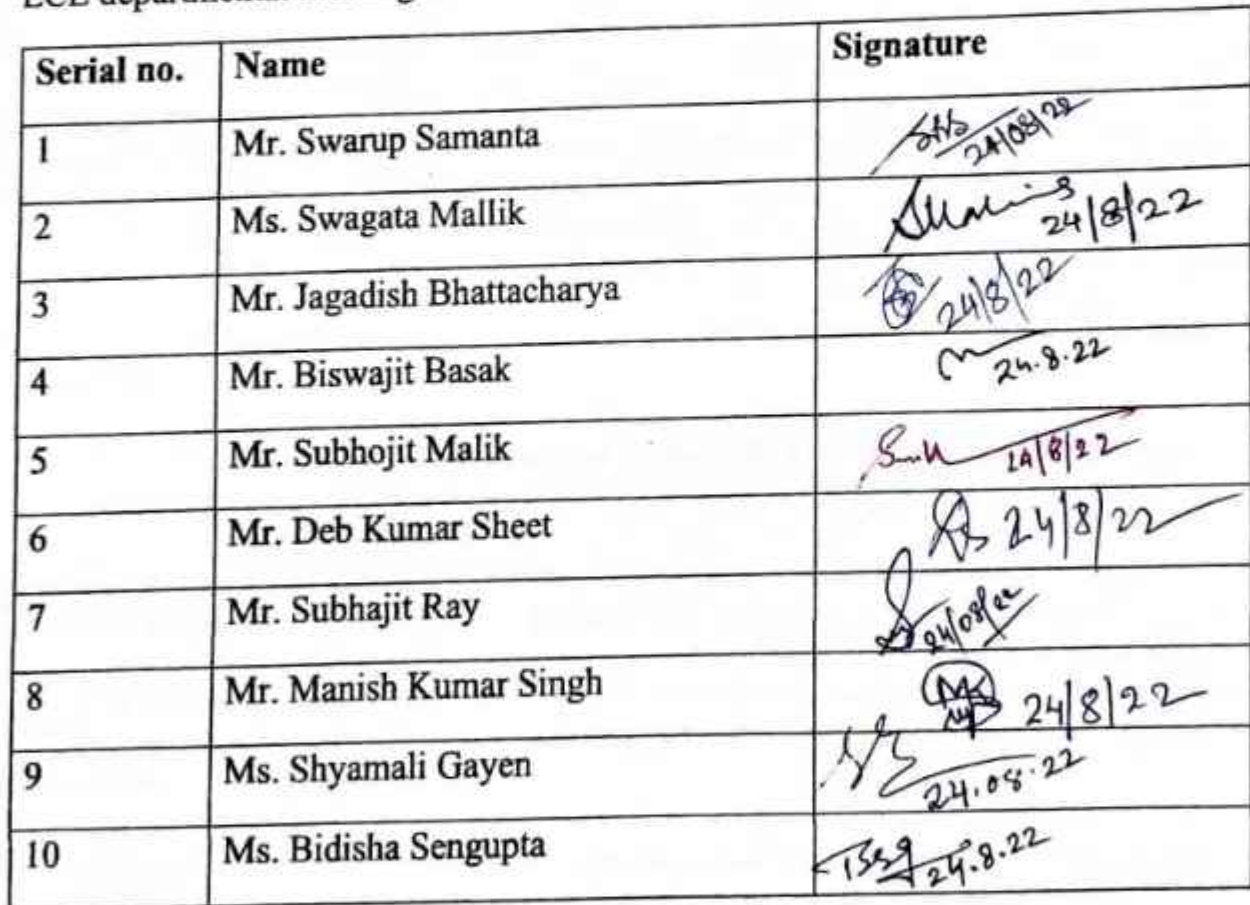 Serial no. Name Signature
1 Mr. Swarup Samanta 24/08/22
2 Ms. Swagata Mallik 24/8/22
3 Mr. Jagadish Bhattacharya 24/8/22
4 Mr. Biswajit Basak 24.8.22
5 Mr. Subhojit Malik 24/8/22
6 Mr. Deb Kumar Sheet 24/8/22
7 Mr. Subhajit Ray 24/08/22
8 Mr. Manish Kumar Singh 24/8/22
9 Ms. Shyamali Gayen 24.08.22
10 Ms. Bidisha Sengupta 24.8.22